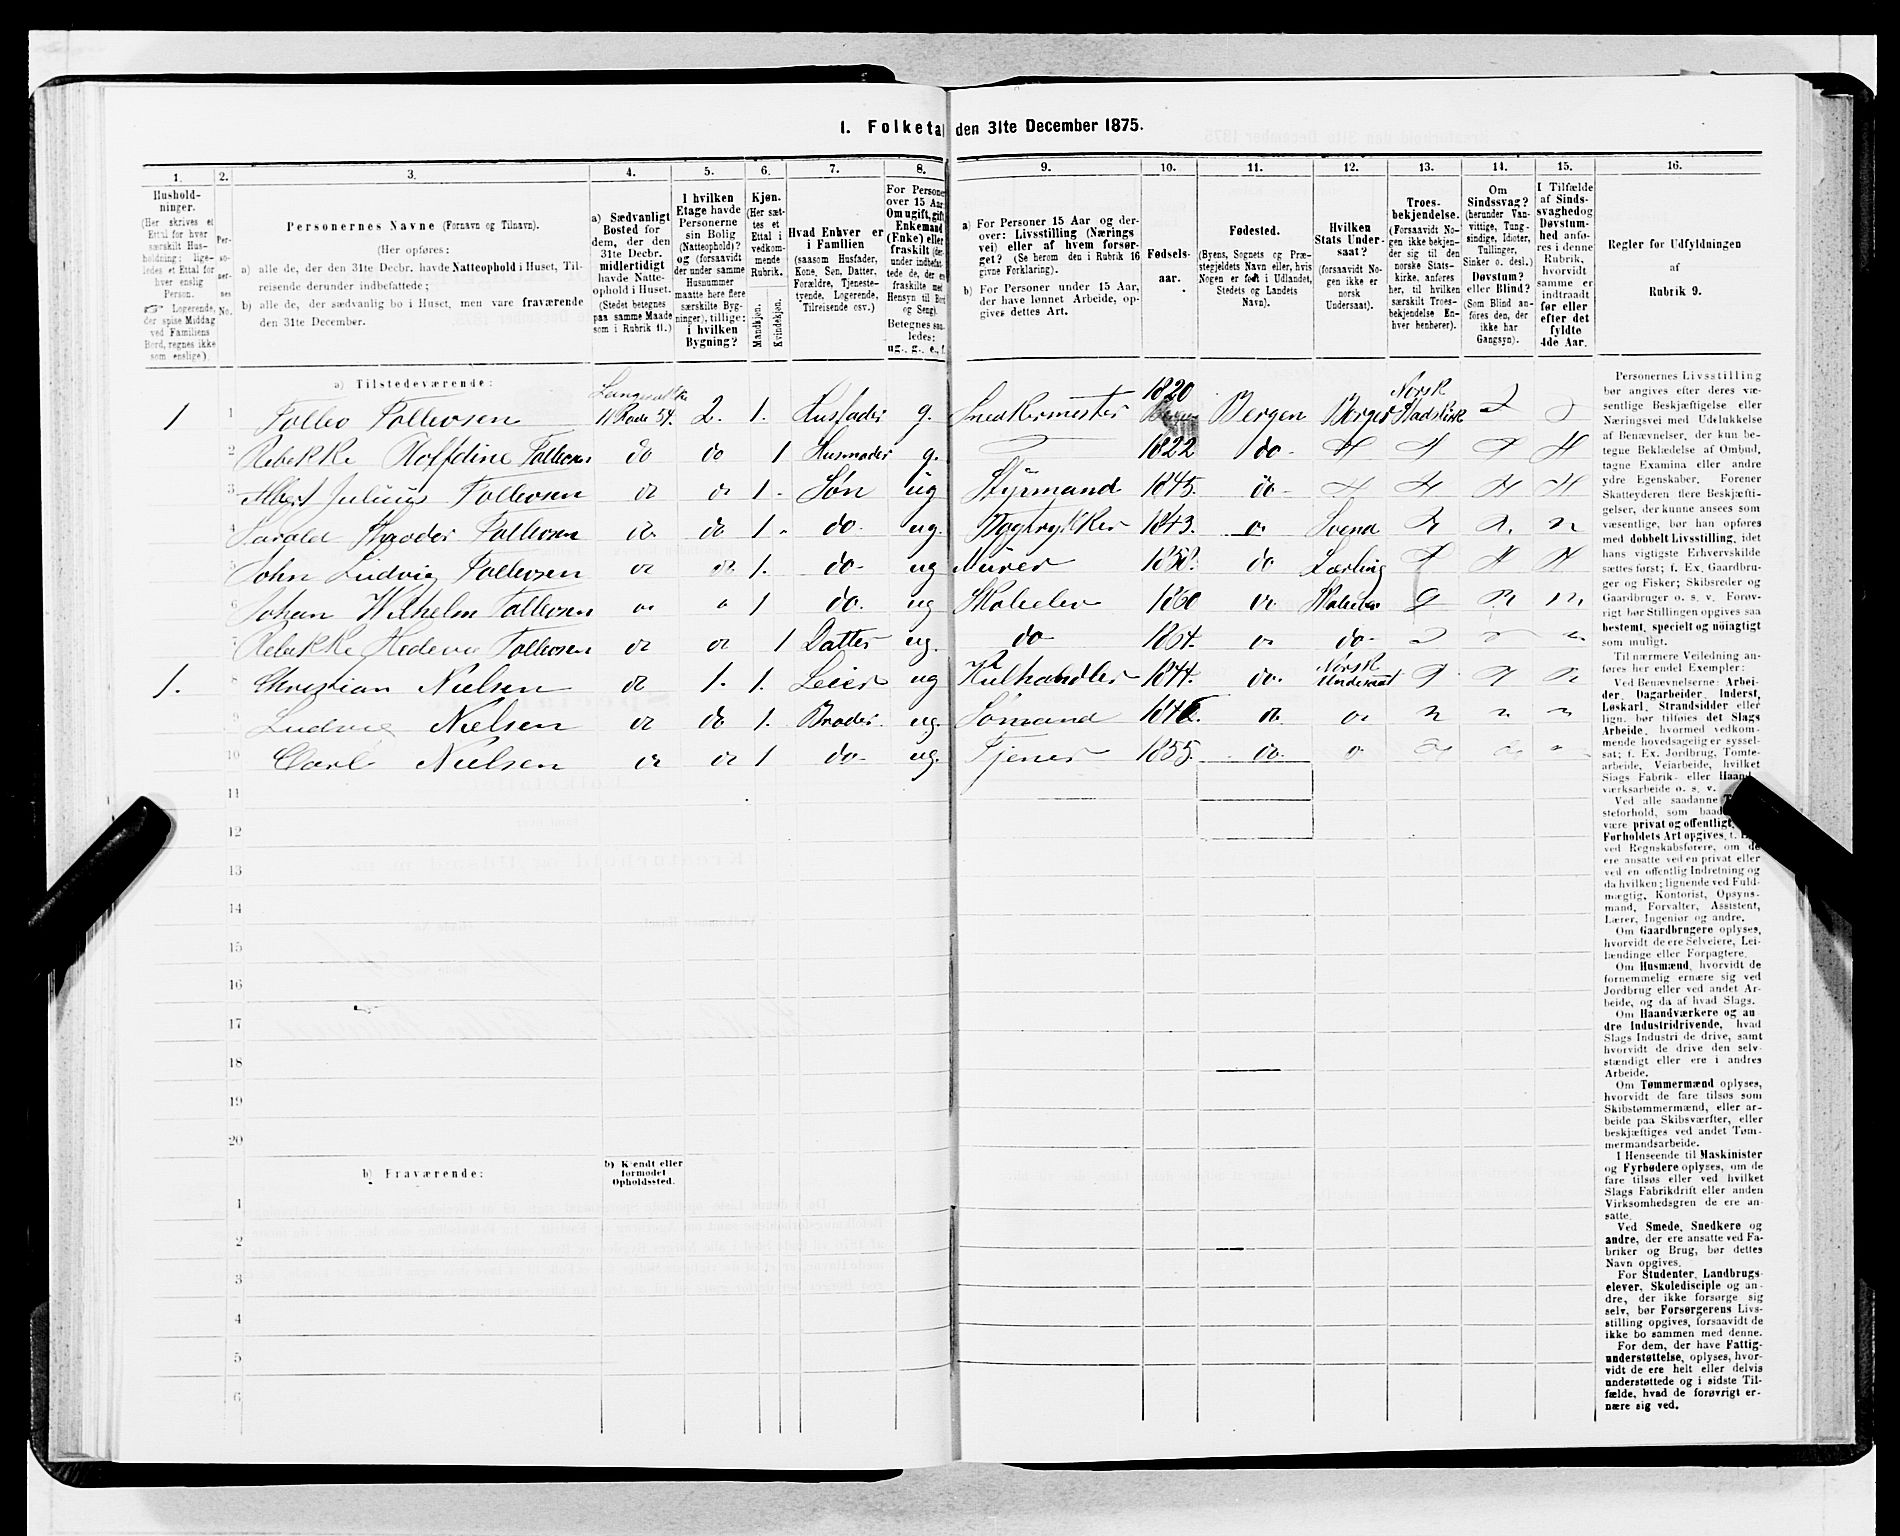 1. Folketal den 31te December 1875.
1.
Hushold-
ninger.
(Her skrives et
Ettal for hver
særskilt Hus-
holdning; lige-
ledes et Ettal for
hver enslig
Person.
☞ Logerende,
der spise Middag
ved Familiens
Bord, regnes ikke
som enslige).
2.
Per-
so-
ner-
nes
No.
3.
Personernes Navne (Fornavn og Tilnavn).
(Her opføres:
a) alle de, der den 31te Decbr. havde Natteophold i Huset, Til-
reisende derunder indbefattede;
b) alle de, der sædvanlig bo i Huset, men vare fraværende
den 31te December.
4.
a) Sædvanligt
Bosted for
dem, der den
31te Decbr.
midlertidigt
havde Natte-
ophold i Huset.
(Stedet betegnes
paa samme Maade
som i Rubrik 11.)
5.
I hvilken
Etage havde
Personerne
sin Bolig
(Natteophold)?
og (forsaavidt
der under samme
Husnummer
maatte høre flere
særskilte Byg-
ninger), tillige:
i hvilken
Bygning?
6.
Kjøn.
(Her sæt-
tes et
Ettal i
vedkom-
mende
Rubrik.
Mandkjøn.
Kvindekjøn.
7.
Hvad Enhver er
i Familien
(saasom Husfader,
Kone, Søn, Datter,
Forældre, Tjeneste-
tyende, Logerende,
Tilreisende osv.)
8.
For Personer
over 15 Aar:
Om ugift, gift,
Enkemand
(Enke) eller
fraskilt (der-
under indbefat-
tede de, der ere
fraskilte med
Hensyn til Bord
og Seng).
Betegnes saa-
ledes:
ug., g., e., f.
9.
a) For Personer 15 Aar og der-
over: Livsstilling (Nærings
vei) eller af hvem forsør-
get? (Se herom den i Rubrik 16
givne Forklaring).
b) For Personer under 15 Aar,
der have lønnet Arbeide, op-
gives dettes Art.
10.
Fødsels-
aar.
11.
Fødested.
(Byens, Sognets og Præ-
stegjeldets Navn eller, hvis
Nogen er født i Udlandet,
Stedets og Landets
Navn).
12.
Hvilken
Stats Under-
saat?
(forsaavidt No-
gen ikke er
norsk
Undersaat).
13.
Troes-
bekjendelse.
(Forsaavidt No-
gen ikke bekjen-
der sig til den
norske Stats-
kirke, anføres
her, til hvilken
særskilt Troes-
bekjendelse En-
hver henhører).
14.
Om
Sindssvag?
(herunder Van-
vittige, Tung-
sindige, Idioter,
Tullinger,
Sinker o. desl.)
Døvstum?
eller Blind?
(Som Blind an-
føres den, der
ikke har
Gangsyn).
15.
I Tilfælde
af Sinds-
svaghed og
Døvstum-
hed anfø-
res i denne
Rubrik,
hvorvidt
samme er
indtraadt
før eller
efter det
fyldte
4de Aar.
16.
Regler for Udfyldningen
af
Rubrik 9.
a) Tilstedeværende:
1 1 Tollev Tollevsen 11 Rode 54. 2. 1. Husfader g. Snedkermester 1820 Bergen Borger Norsk Statskirk
2 Rebekke Tollevsen do do 1 Husmoder g. 1822 do
3 Albert Julius Tollevsen do do 1. Søn ug Styrmand 1845. do
4 Harald Tollevsen do do 1. do. ug. Bogtrykker 1843. do Svend
5 John Ludvig Tollevsen do do 1. do ug Murer do Lærling
6 Johan Wilhelm Tollevsen do do 1 do. ug Skoleelev 1860 do Skoleelev
7 Rebekke Tollevsen do do 1 Datter ug. do 1864. do do
1. 8 Christian Nielsen do 1. 1. Leier ug Kulhandler 1844. do. Norsk Undersaat
9 Ludvig Nielsen do do 1. Broder ug. Sømand do do
10 Carl Nielsen do do 1 do ug. Tjener 1855. do do
11
12
13
14
15
16
17
18
19
20
b) Fraværende:
b) Kjendt eller
formodet
Opholdssted.
1
2
3
4
5
6
Personernes Livsstilling
bør angives efter deres væ-
sentlige Beskjæftigelse eller
Næringsvei med Udelukkelse
af Benævnelser, der kun be-
tegne Beklædelse af Ombud,
tagne Examina eller andre
ydre Egenskaber. Forener
Skatteyderen flere Beskjæfti-
gelser, der kunne ansees som
væsentlige, bør han opføres
med dobbelt Livsstilling, idet
hans vigtigste Erhvervskilde
sættes først; f. Ex. Gaardbru-
ger og Fisker; Skibsreder og
Gaardbruger o. s. v. Forøv-
rigt bør Stillingen opgives saa
bestemt, specielt og nøiagtigt
som muligt.
Til nærmere Veiledning an-
føres her endel Exempler:
Ved Benævnelserne: Arbei-
der, Dagarbeider, Inderst,
Løskarl, Strandsidder eller
lign. bør tilføies det Slags
Arbeide, hvormed vedkom-
mende hovedsagelig er syssel-
sat; f. Ex. Jordbrug, Tomte-
arbeide, Veiarbeide, hvilket
Slags Fabrik- eller Haand-
værksarbeide o. s. v.
Ved alle saadanne
steforhold, som baade
være privat og offentligt,
Forholdets Art opgives, t. Ex.
ved Regnskabsførere, om de
ere ansatte ved en privat eller
ved en offentlig Indretning og
da hvilken; lignende ved Fuld-
mægtig, Kontorist, Opsyns-
mand, Forvalter, Assistent,
Lærer, Ingeniør og andre.
Om Gaardbrugere oplyses,
hvorvidt de ere Selveiere, Lei-
lændinge eller Forpagtere.
Om Husmænd, hvorvidt de
fornemmelig ernære sig ved
Jordbrug eller ved andet Ar-
beide, og da af hvad Slags.
Om Haandværkere og an
dre Industridrivende, hvad
Slags Industri de drive, samt
hvorvidt de drive den selv-
stændigt eller ere i andres
Arbeide.
Om Tømmermænd oplyses,
hvorvidt de fare tilsøs som
Skibstømmermænd, eller ar-
beide paa Skibsværfter, eller
beskjæftiges ved andet Tøm-
mermandsarbeide.
I Henseende til Maskinister
og Fyrbødere oplyses, om de
fare tilsøs eller ved hvilket
Slags Fabrikdrift eller anden
Virksomhedsgren de ere an-
satte.
Ved Smede, Snedkere og
andre, der ere ansatte ved Fa-
briker og Brug, bør dettes
Navn opgives.
For Studenter, Landbrugs-
elever, Skoledisciple og an-
dre, der ikke forsørge sig
selv, bør Forsørgerens Livs-
stilling opgives, forsaavidt de
ikke bo sammen med denne.
For dem, der have Fattig-
understøttelse, oplyses, hvor-
vidt de ere helt eller delvis
understøttede og i sidste Til-
fælde, hvad de forøvrigt er-
nære sig ved.